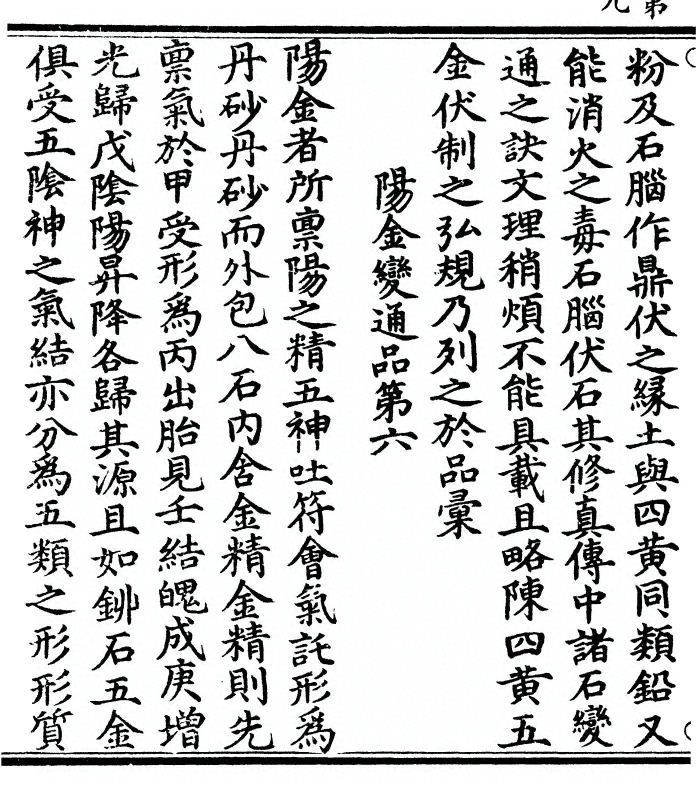 粉及石腦作鼎伏之縁土與四黄同類鉛又
能消火之毒石腦伏石其修真傳中諸石變
通之訣文理稍煩不能具載且略陳四黄五
金伏制之弘規乃列之於品彙
陽金變通品第六
陽金者所禀陽之精五神吐符會氣託形爲
丹砂丹砂而外包八石内含金精金精則先
禀氣於甲受形爲丙出胎見壬結魄成庚增
光歸戊陰陽昇降各歸其源且如鉚石五金
俱受五陰神之氣結亦分爲五類之形形質